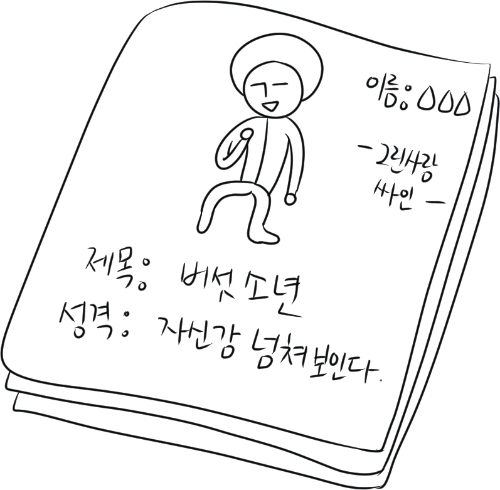 이름: △△△
- 그린사람
싸인 -
제목: 버섯 소년
성격: 자신감 넘쳐보인다.